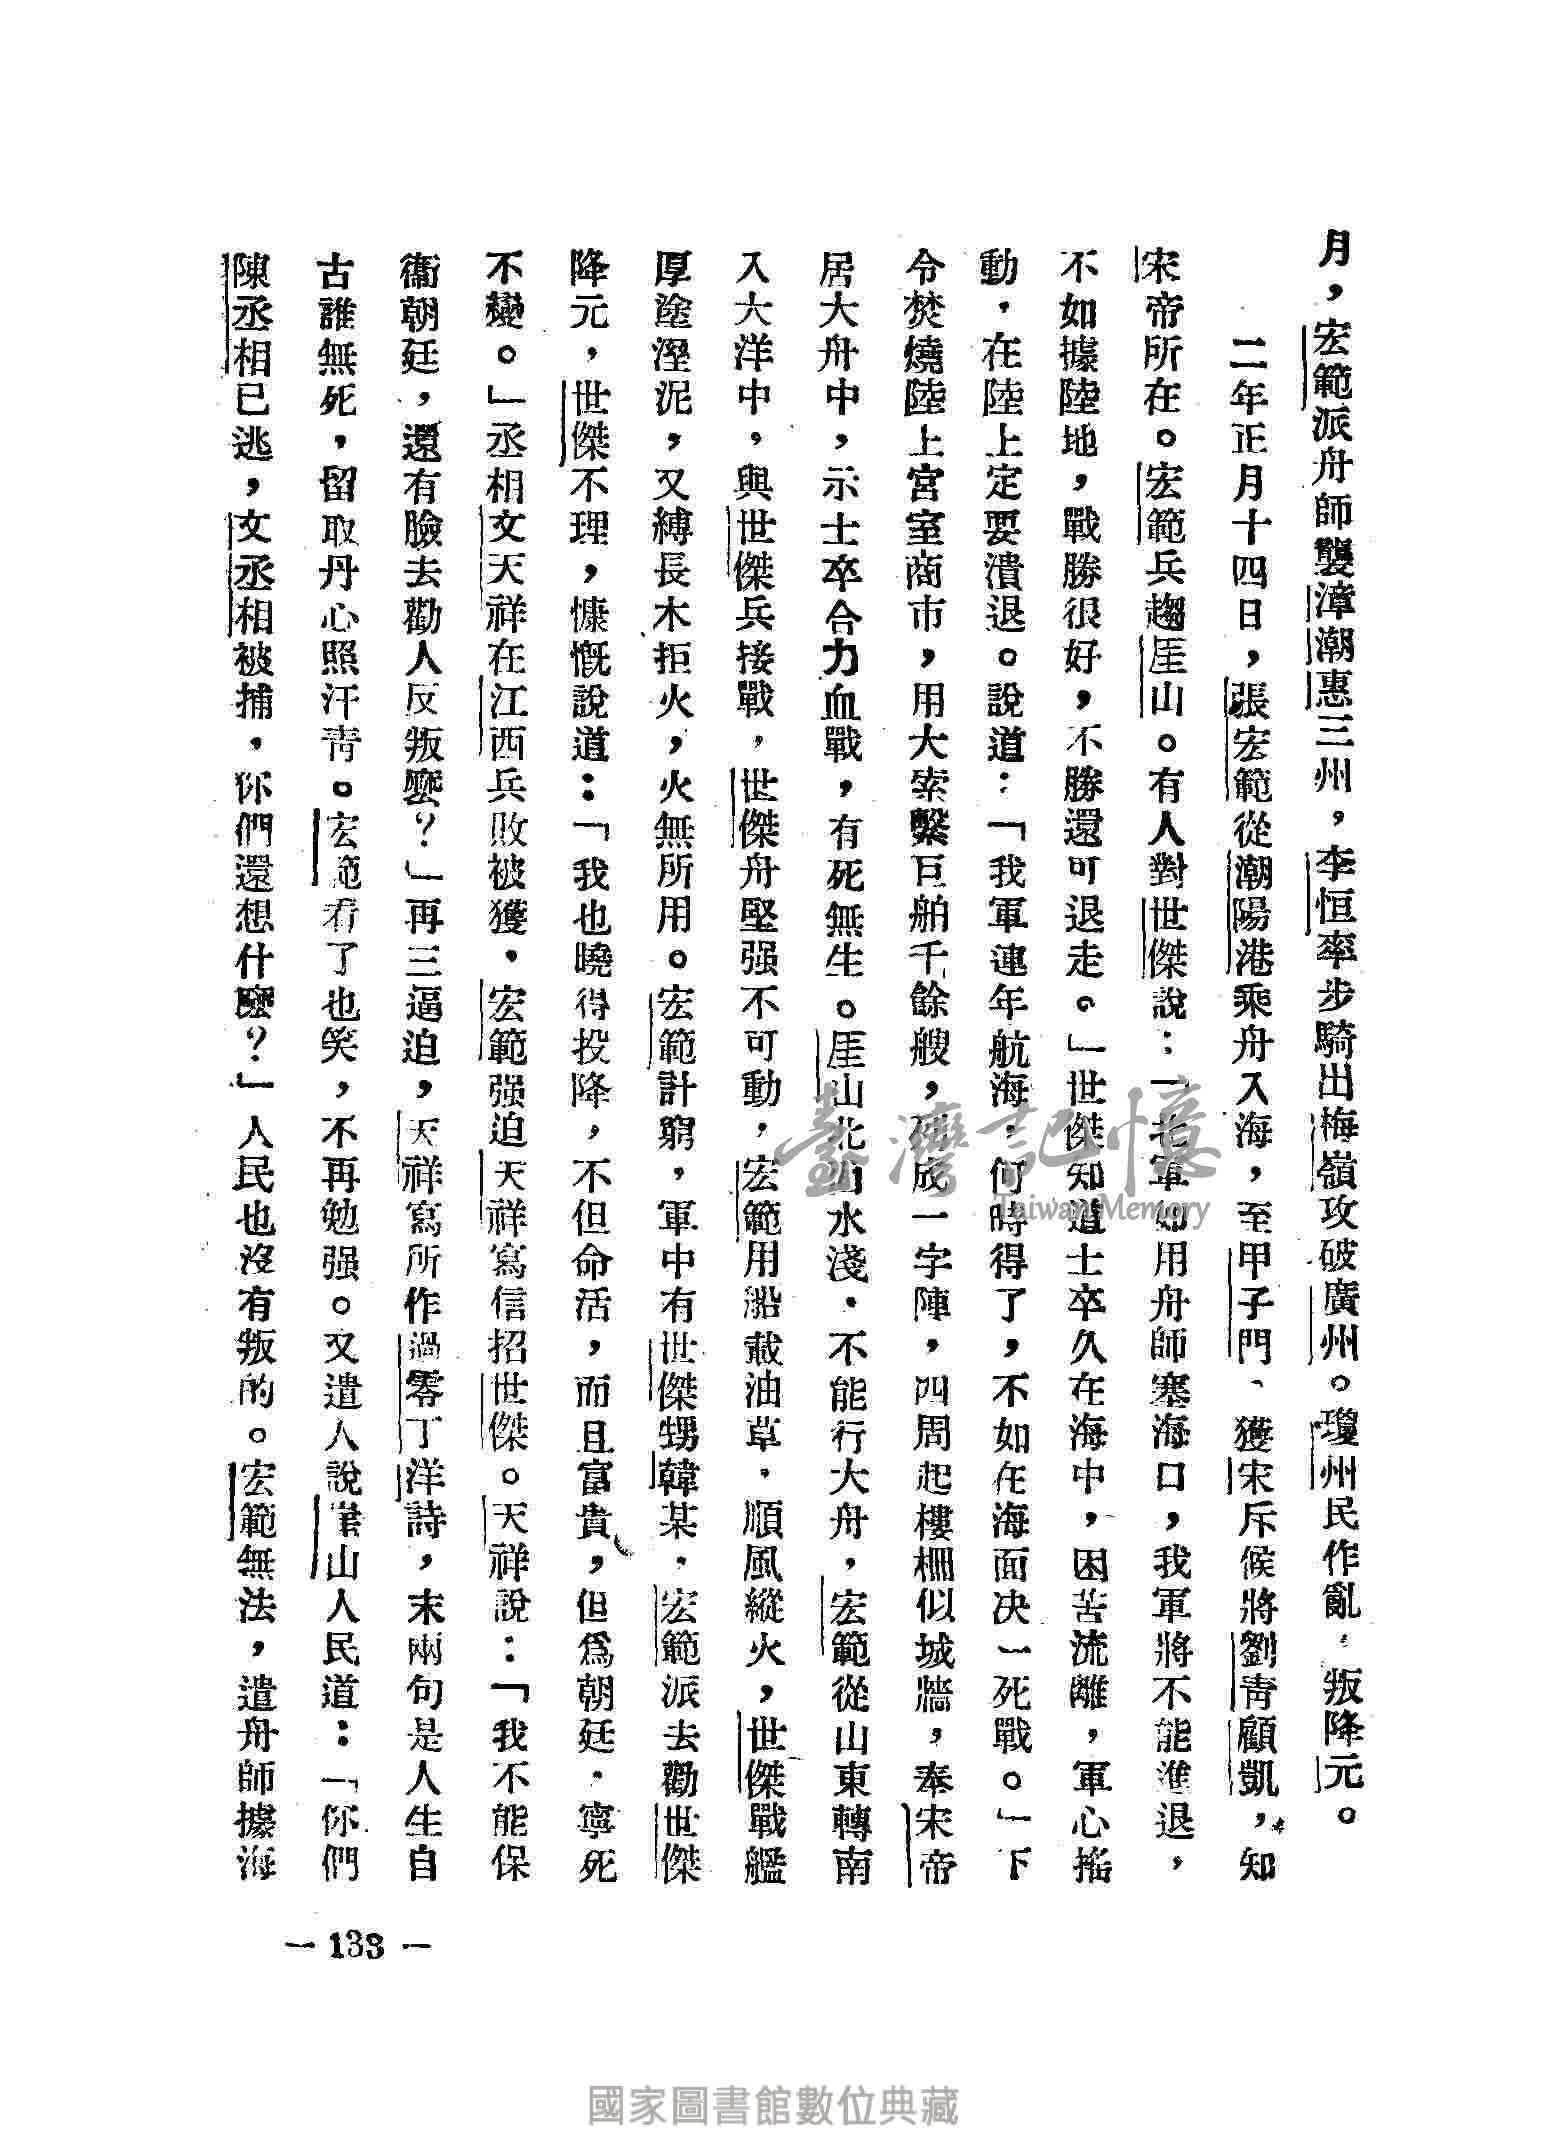 月，宏範派舟師襲漳潮惠三州，李恒率步騎出梅嶺攻破廣州。瓊州民作亂，叛降元。
二年正月十四日，張宏範從潮陽港乘舟入海，至甲子門、獲宋斥候將劉青顧凱，知
宋帝所在。宏範兵趨厓山。有人對世傑說：「北軍如用舟師塞海口，我軍將不能進退，
不如據陸地，戰勝很好，不勝還可退走。」世傑知道士卒久在海中，困苦流離，軍心搖
動，在陸上定要潰退。說道：「我軍連年航海，何時得了，不如在海面决一死戰。」下
令焚燒陸上宮室商市，用大索繫巨舶千餘艘，列成一字陣，四周起樓棚似城牆，奉宋帝
居大舟中，示士卒合力血戰，有死無生。厓山北面水淺，不能行大舟，宏範從山東轉南
入大洋中，與世傑兵接戰，世傑舟堅强不可動，宏範用船載油草，順風縱火，世傑戰艦
厚塗溼泥，又縛長木拒火，火無所用。宏範計窮，軍中有世傑甥韓某，宏範派去勸世傑
降元，世傑不理，慷慨說道：「我也曉得投降，不但命活，而且富貴，但爲朝廷，寧死
不變。」丞相文天祥在江西兵敗被獲，宏範强迫天祥寫信招世傑。天祥說：「我不能保
衞朝廷，還有臉去勸人反叛麼？」再三逼迫，天祥寫所作過零丁洋詩，末兩句是人生自
古誰無死，留取丹心照汗青。宏範看了也笑，不再勉强。又遣人說崖山人民道：「你們
陳丞相已逃，文丞相被捕，你們還想什麼？」人民也沒有叛的。宏範無法，遣舟師據海
— 133 —
臺灣記憶
Taiwan Memory
國家圖書館數位典藏